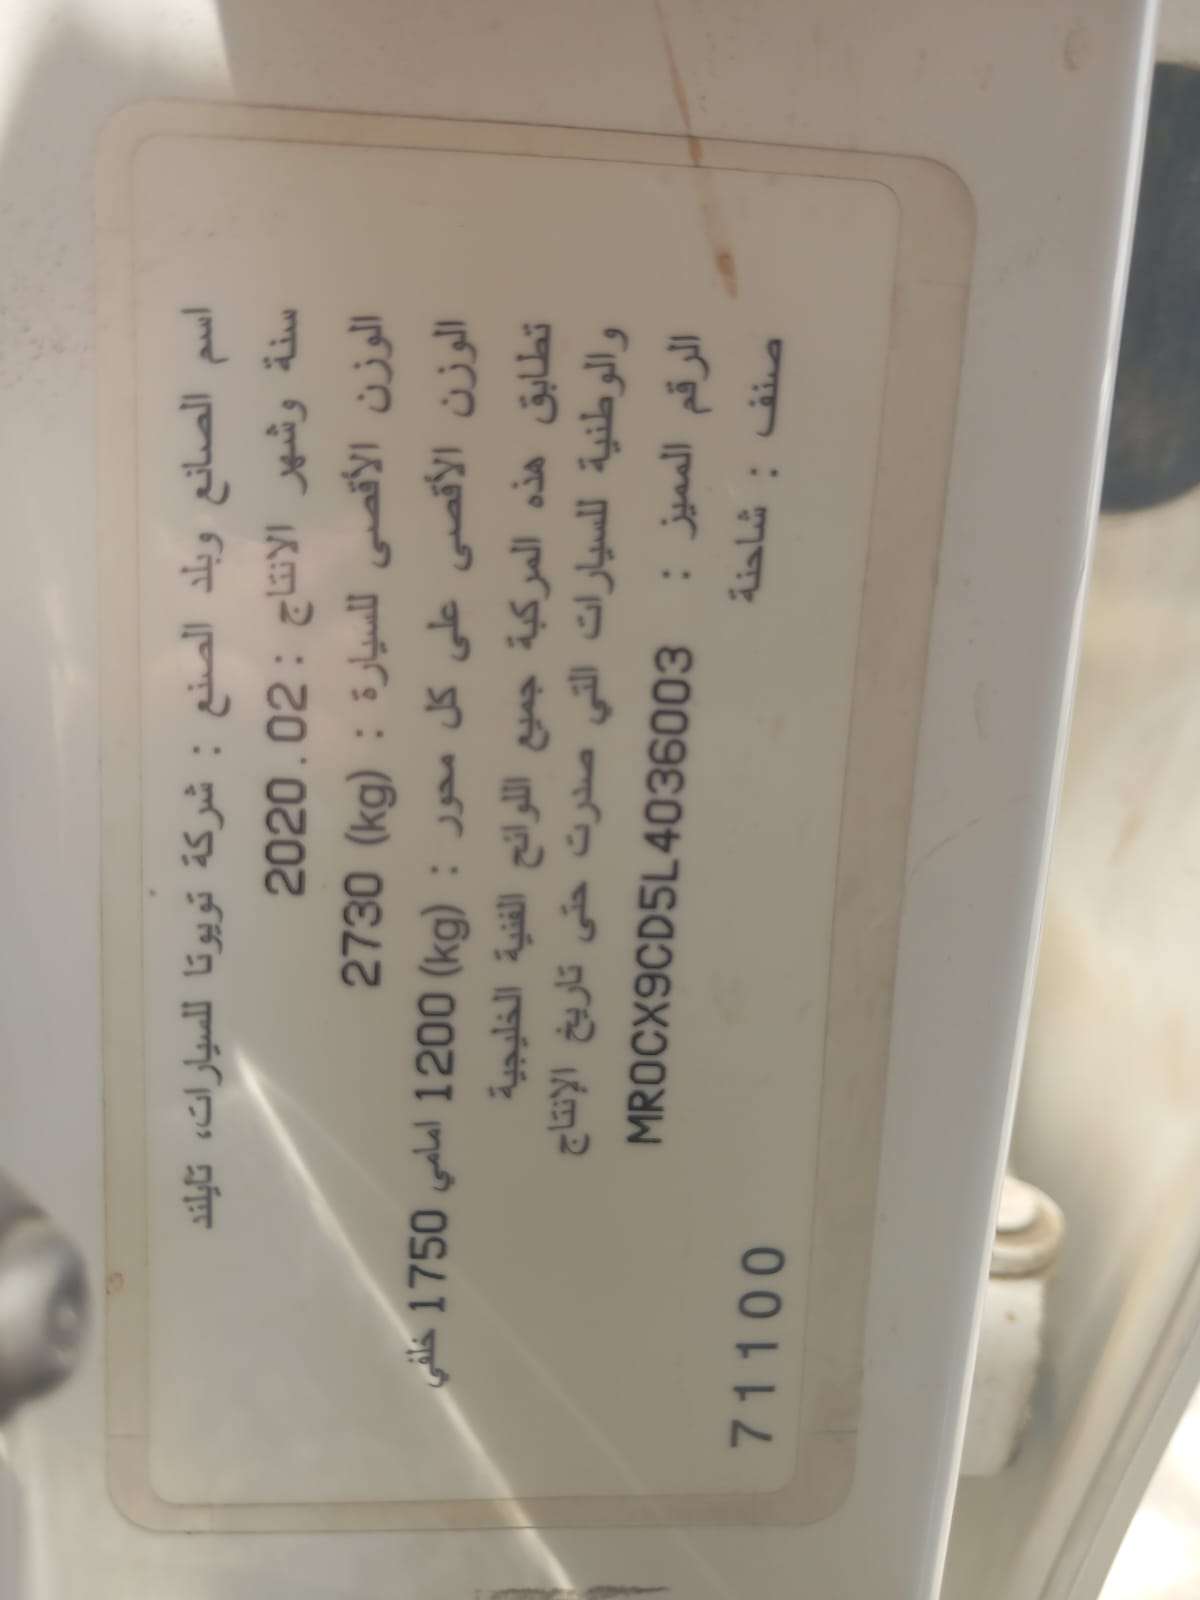 اسم الصانع وبلد الصنع : شركة تويوتا للسيارات، تايلند
سنة وشهر الانتاج : 2020.02
الوزن الأقصى للسيارة : (kg) 2730
الوزن الأقصى على كل محور : (kg) 1200 امامي 1750 خلفي
تطابق هذه المركبة جميع اللوائح الفنية الخليجية
والوطنية للسيارات التي صدرت حتى تاريخ الإنتاج
الرقم المميز : MR0CX9CD5L4036003
صنف : شاحنة 71100